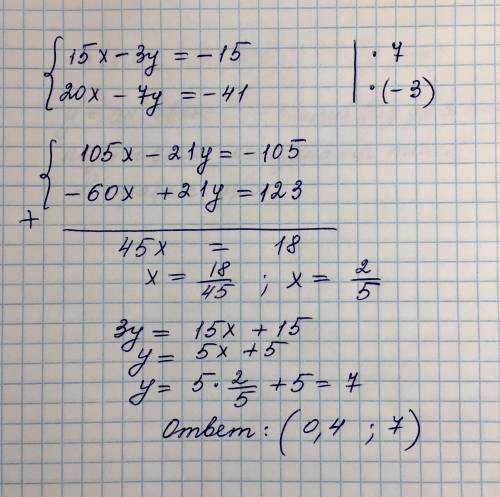 { 15x - 3y = -15 | · 7
{ 20x - 7y = -41 | · (-3)
{ 105x - 21y = -105
+ { -60x + 21y = 123
45x = 18
x = 18/45 ; x = 2/5
3y = 15x + 15
y = 5x + 5
y = 5 · 2/5 + 5 = 7
Ответ: (0,4 ; 7)